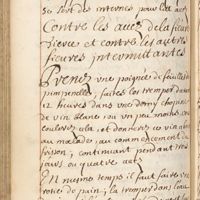 se sert des internes pour
Contre les accez de la fieure
tierce et contre les autres
fieures intermittantes
Prenez une poignée de feuilles de
pimpenelle, faites les tremper dans
12 heures dans une demy chopine
de vin blanc ou un peu moins
coulerez cela et donnerez ce vin
au malade, au commencement du
frisson, continuant pendant trois
jours ou quatre
En mesme temps il faut faire une
rotie de pain, la tremper dans l'eau